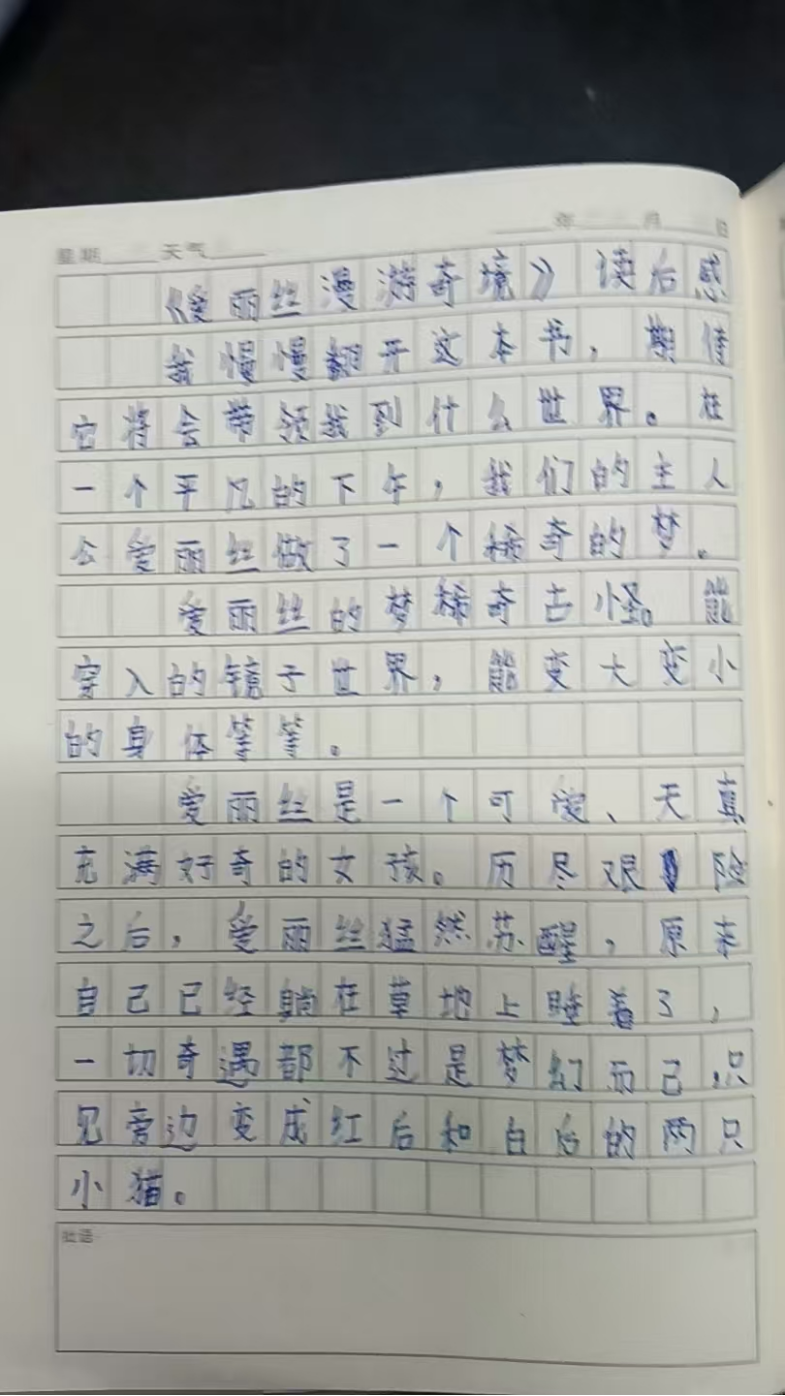 星期 天气 年 月 日
《爱丽丝漫游奇境》读后感
我慢慢翻开这本书，期待
它将会带领我到什么世界。在
一个平凡的下午，我们的主人
公爱丽丝做了一个稀奇的梦。
爱丽丝的梦稀奇古怪。能
穿入的镜子世界，能变大变小
的身体等等。
爱丽丝是一个可爱、天真
充满好奇的女孩。历尽艰险
之后，爱丽丝猛然苏醒，原来
自己已经躺在草地上睡着了，
一切奇遇都不过是梦幻而已.只
见旁边变成红后和白后的两只
小猫。
批语